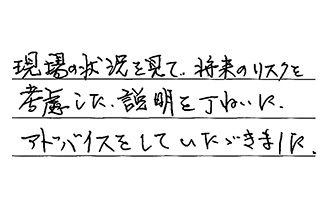 現場の状況を見て、将来のリスクを
考慮した、説明を丁ねいに、
アドバイスをしていただきました。